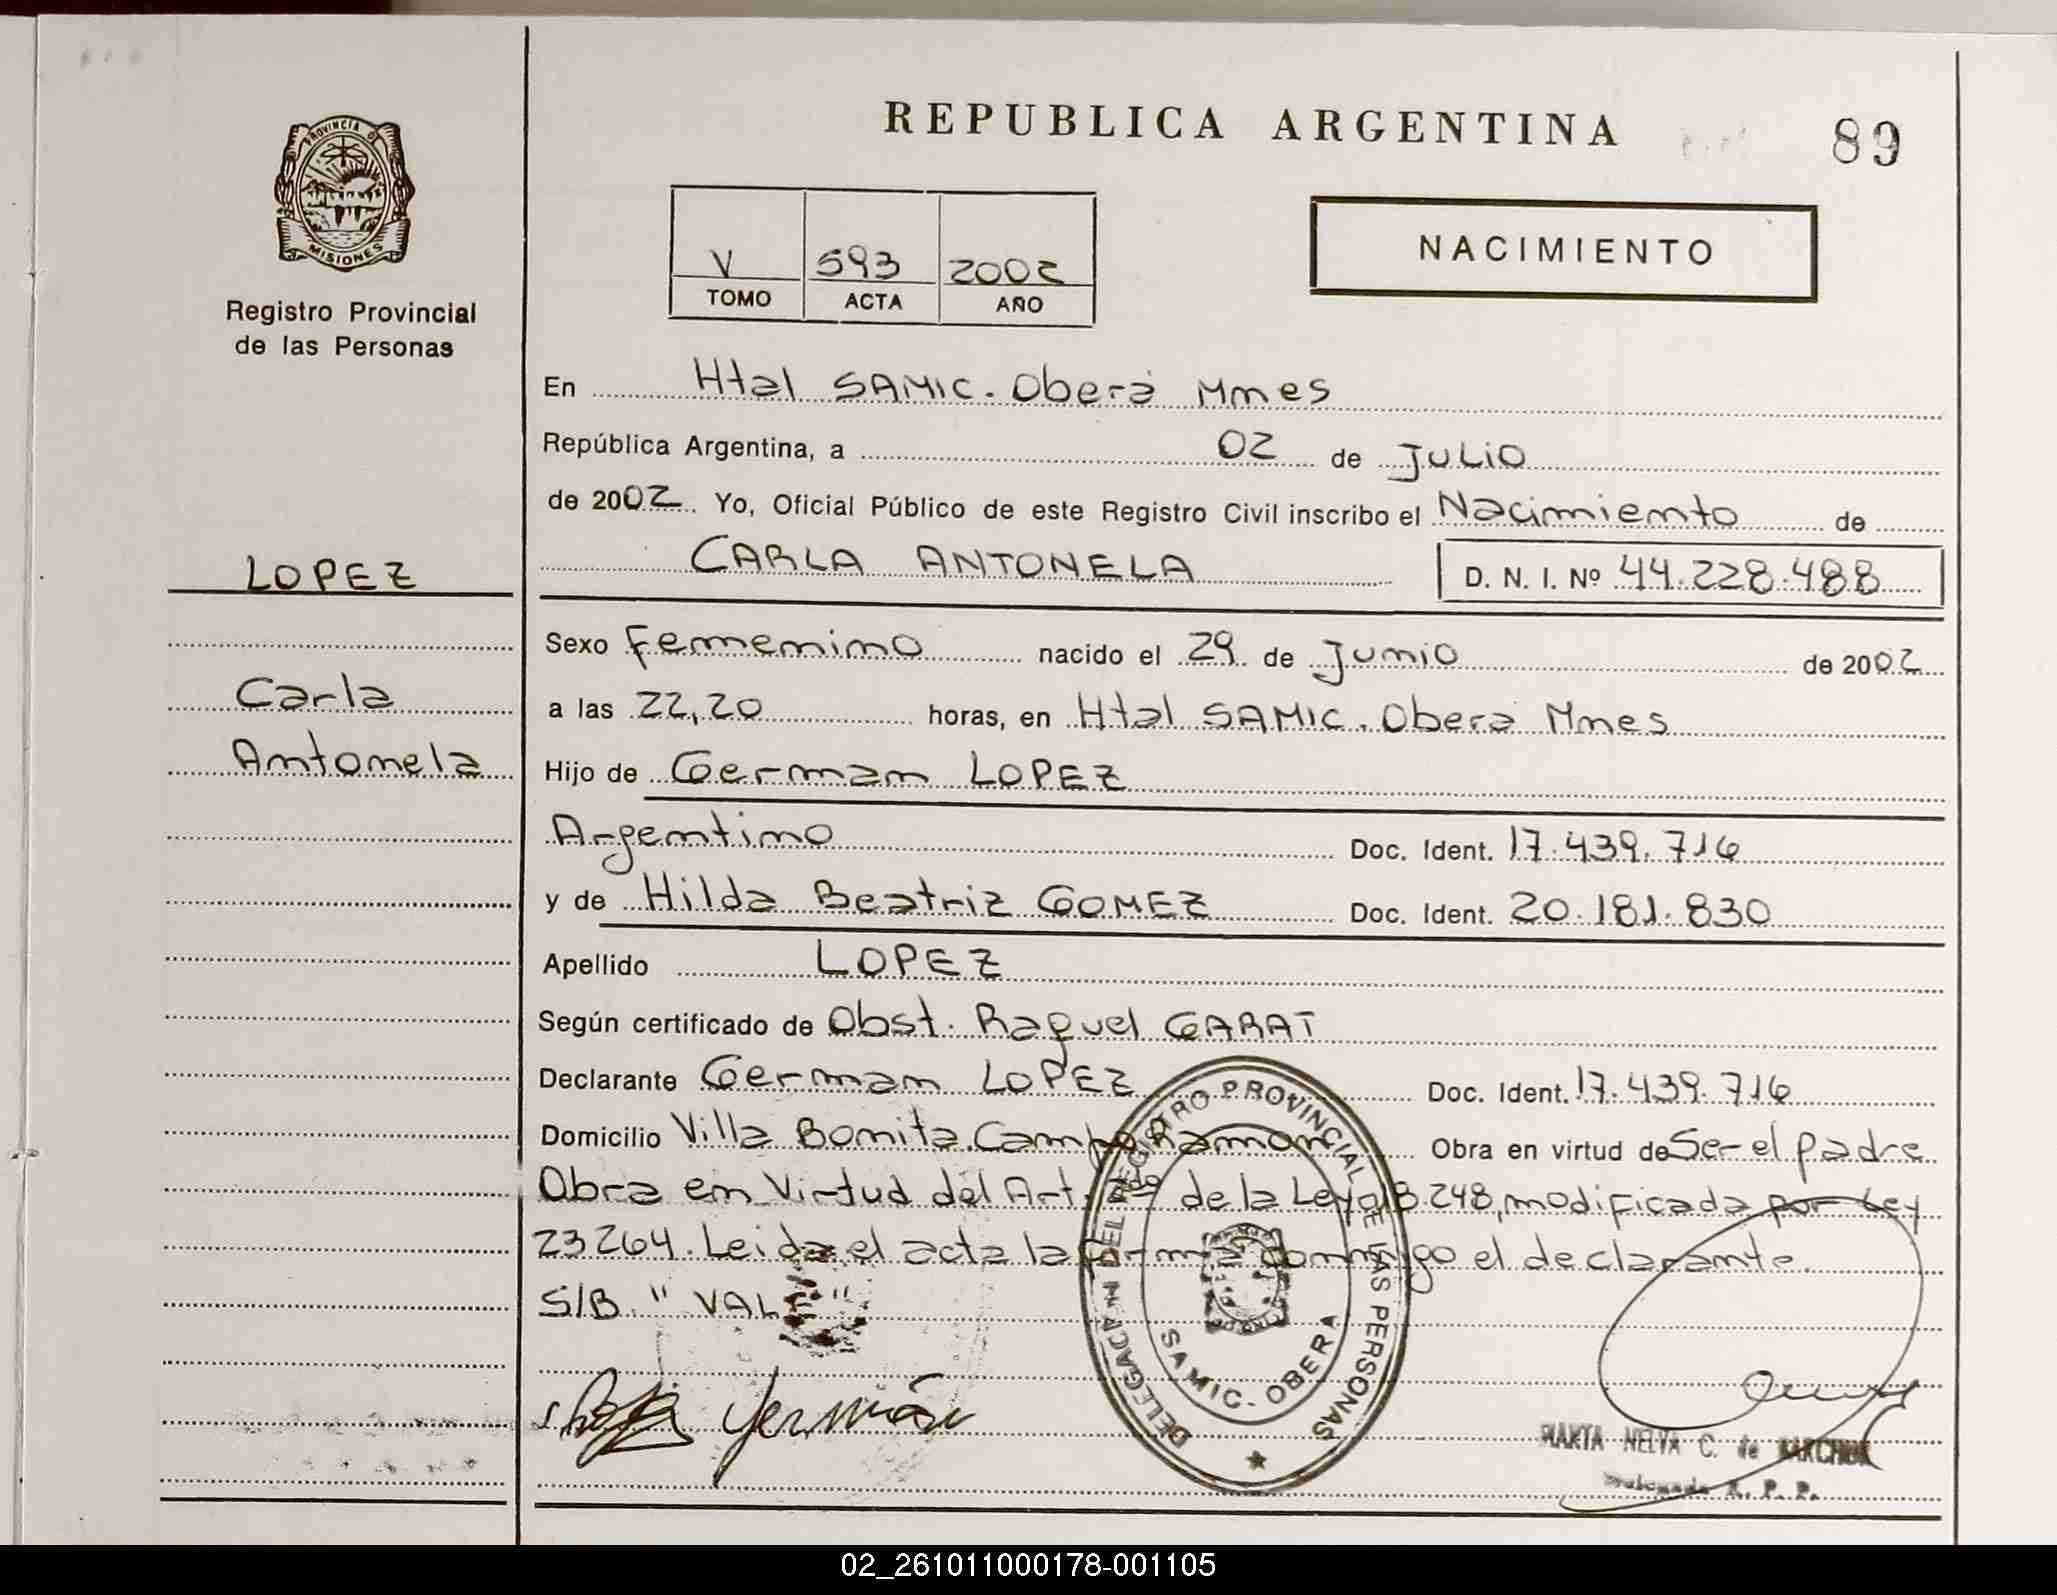 REPUBLICA ARGENTINA
89
PROVINCIA DE
MISIONES
Registro Provincial
de las Personas
V 593 2002
TOMO ACTA AÑO
NACIMIENTO
En Htal SAMIC. Oberá Mnes
República Argentina, a 02 de JULIO
de 2002 Yo, Oficial Público de este Registro Civil inscribo el Nacimiento de
CARLA ANTONELA D. N. I. Nº 44.228.488
LOPEZ
Carla
Antonela
Sexo Femenino nacido el 29 de Junio de 2002
a las 22,20 horas, en Htal SAMIC. Obera Mnes
Hijo de German LOPEZ
Argentino Doc. Ident. 17.439.716
y de Hilda Beatriz GOMEZ Doc. Ident. 20.181.830
Apellido LOPEZ
Según certificado de Obst. Raquel GARAT
Declarante German LOPEZ Doc. Ident. 17.439.716
Domicilio Villa Bonita. Campo Ramon Obra en virtud de Ser el padre
Obra en Virtud del Art. 2do de la Ley 18.248, modificada por Ley
23264. Leida el acta la firma conmigo el declarante.
S/B " VALE "
Germán
DELEGACION DEL REGISTRO PROVINCIAL DE LAS PERSONAS
SAMIC. OBERA
NELVA C. de
R. P. P.
02_261011000178-001105